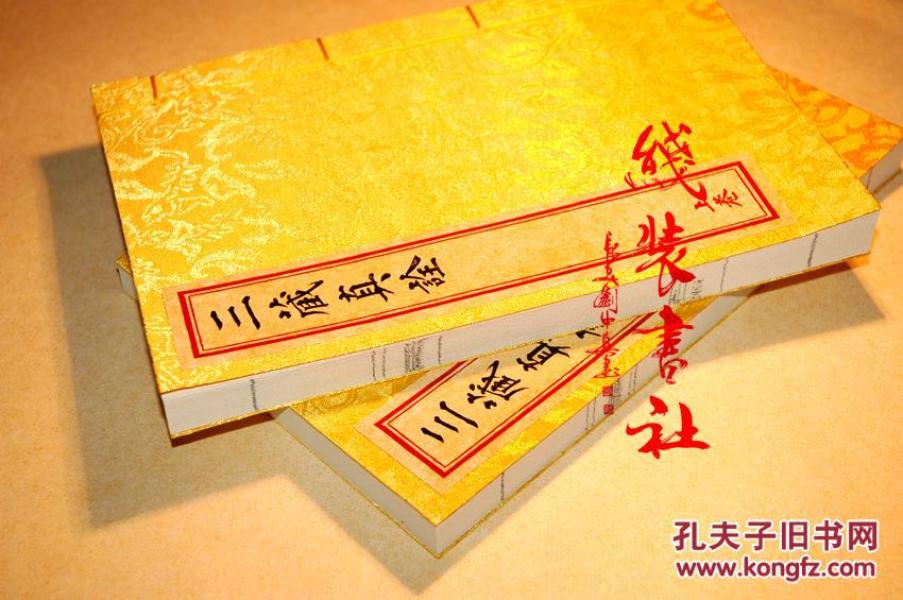 三藏真诠
上卷
三藏真
线装书社
孔夫子旧书网
www.kongfz.com